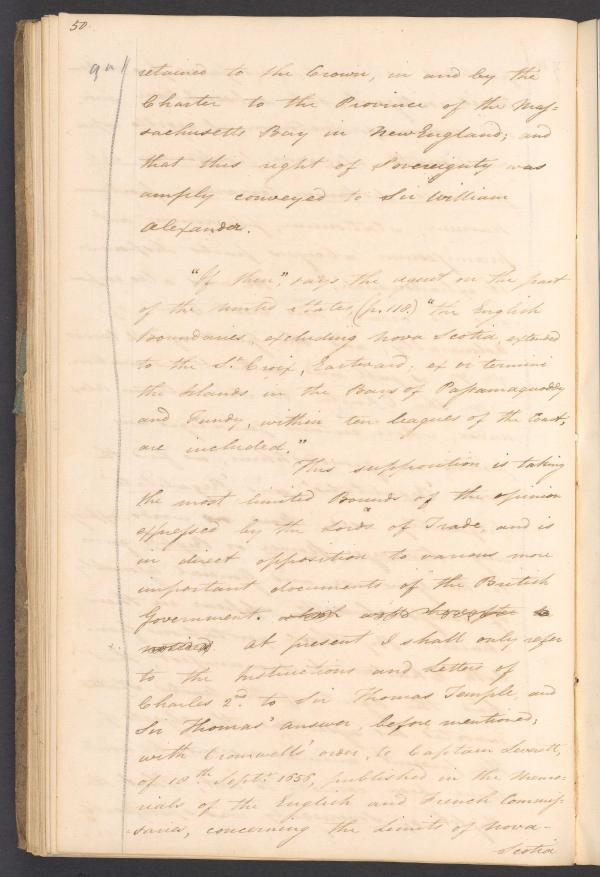 50.
retained to the Crown, in and by the
Charter to the Province of the Mas-
sachusetts Bay in New England; and
that this right of Sovereignty was
amply conveyed to Sir William
Alexander.
"If then," says the agent on the part
of the United States (p. 118.) "the English
Boundaries, excluding Nova Scotia, extended
to the St. Croix, Eastward, ex vi termini
the Islands in the Bays of Passamaquoddy
and Fundy, within ten leagues of the Coast,
are included."
This supposition is taking
the most limited Bounds of the opinion
expressed by the Lords of Trade, and is
in direct opposition to various more
important documents of the British
Government. which will hereafter be
noticed At present I shall only refer
to the Instructions and Letters of
Charles 2d. to Sir Thomas Temple, and
Sir Thomas' answer, before mentioned;
with Cromwells' order, to Captain Leverett,
of 18th Septr. 1656, published in the Memo-
rials of the English and French Commis-
saries, concerning the Limits of Nova-
Scotia